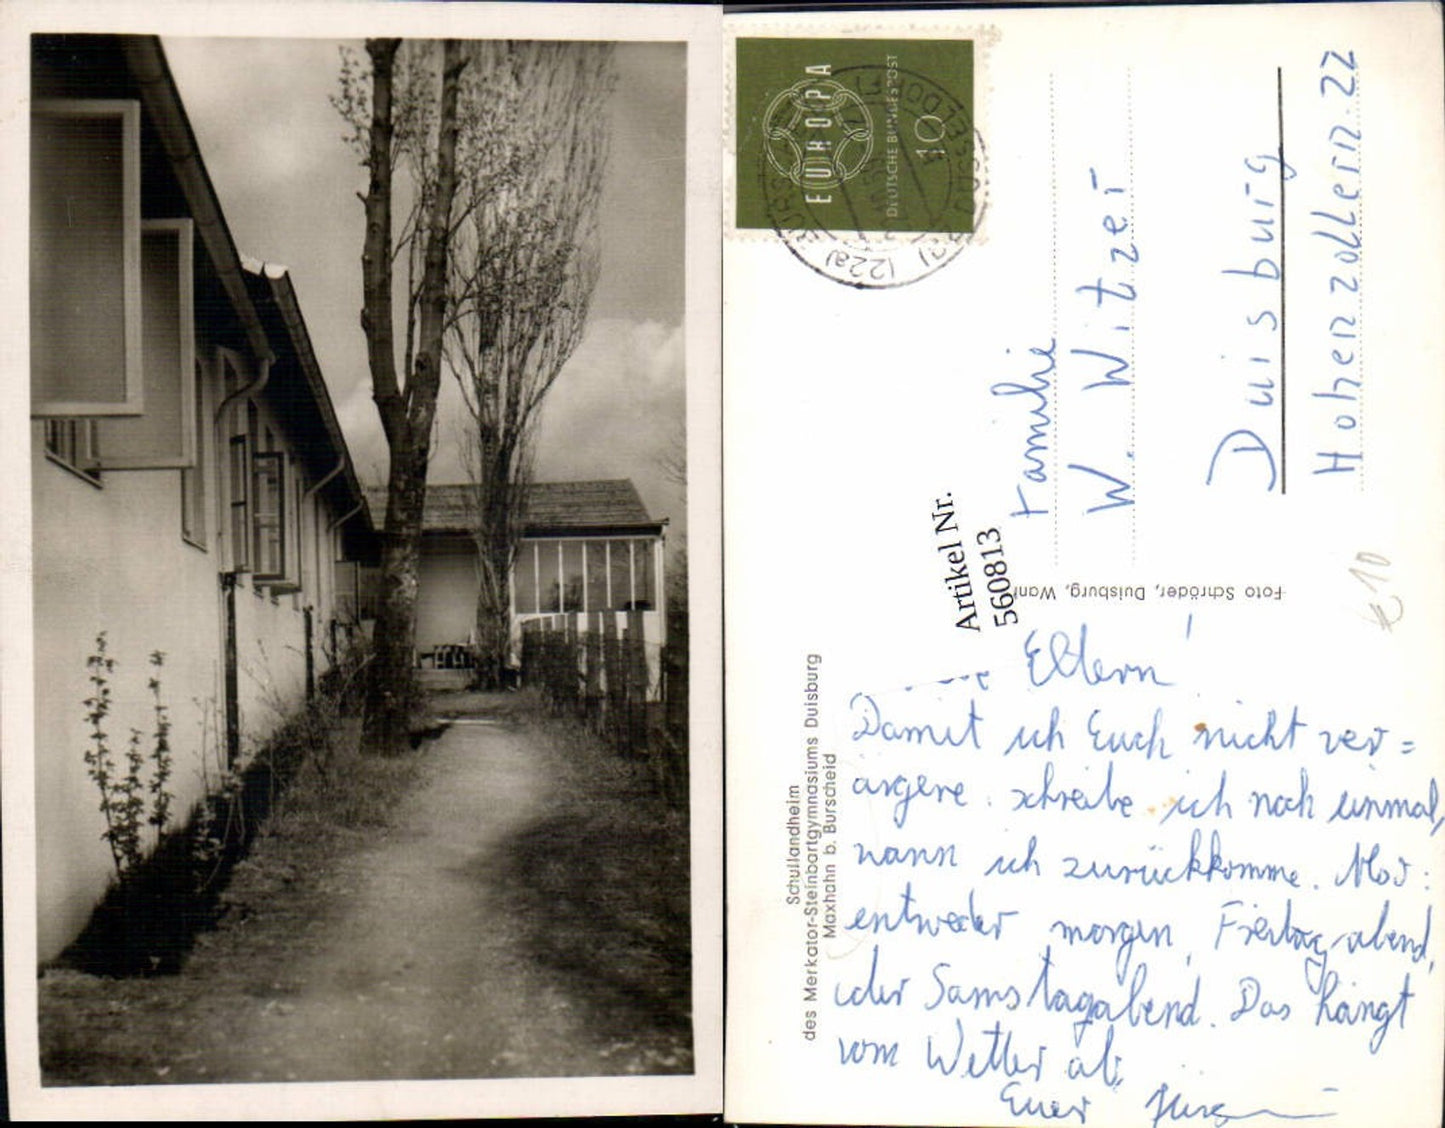 EUROPA
DEUTSCHE BUNDESPOST
10
(22a)
Familie
W. Witzer
Duisburg
Hohenzollern. 22
Artikel Nr.
560813
Foto Schröder, Duisburg,
€ 10
Schullandheim
des Merkator-Steinbartgymnasiums Duisburg
Maxhahn b. Burscheid
Eltern!
Damit ich Euch nicht ver=
ärgere schreibe ich noch einmal,
wann ich zurückkomme.
entweder morgen, Freitag abend,
oder Samstagabend. Das hängt
vom Wetter ab.
Euer Jürgen